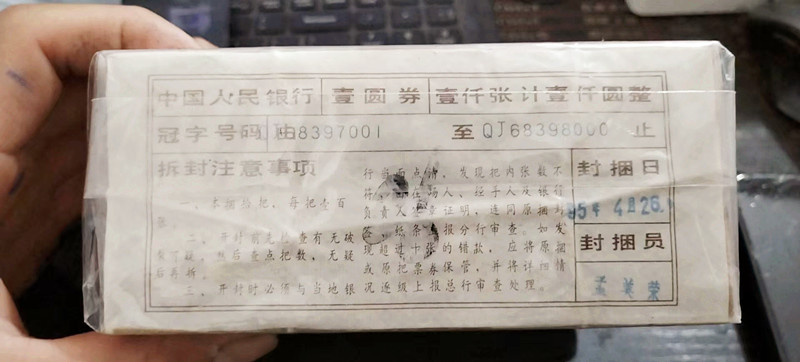 中国人民银行 壹圆券 壹仟张计壹仟圆整
冠字号码 由 8397001 至 QJ68398000 止
拆封注意事项
一、本捆拾把，每把壹百
张。
二、开封前先检查有无破
然后查点把数，无疑
后再拆。
三、开封时必须与当地银
行当面点清，发现把内张数不
符，在场人、经手人及银行
负责人证明，连同原捆封
签，纸条上报分行审查。如发
现超过十张的错款，应将原捆
或原把票券保管，并将详细情
况逐级上报总行审查处理。
封捆日
95年 4月26
封捆员
孟美荣